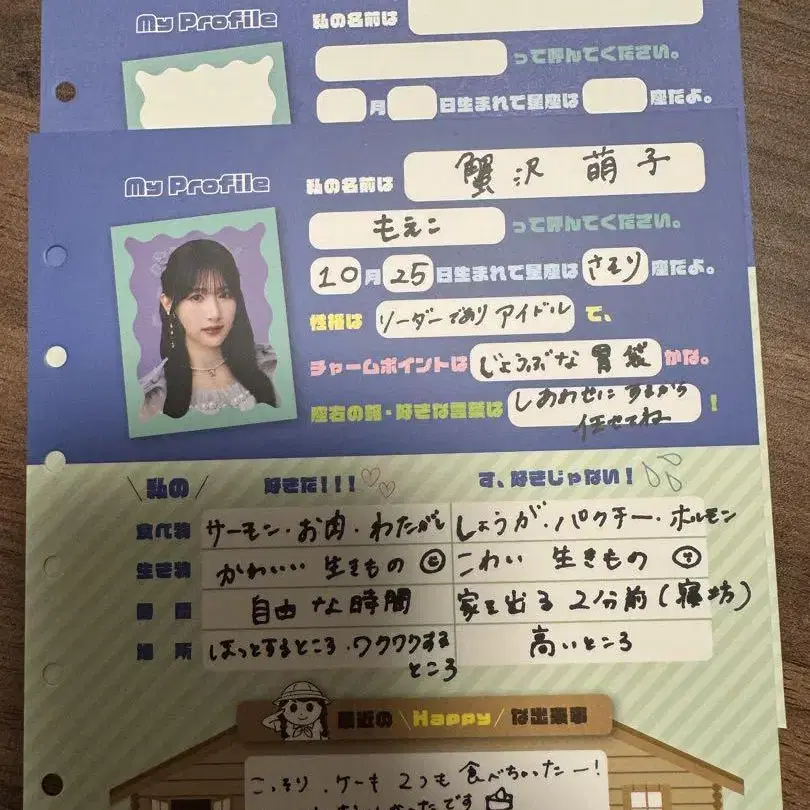 My Profile
私の名前は
って呼んでください。
月 日生まれで星座は 座だよ。
My Profile
私の名前は 蟹沢 萌子
もえこ って呼んでください。
10月25日生まれで星座はさそり座だよ。
性格は リーダーでありアイドル で、
チャームポイントは じょうぶな胃袋 かな。
座右の銘・好きな言葉は しあわせにするから 任せてね !
私の 好きだ!!! す、好きじゃない!
食べ物 サーモン・お肉・わたがし しょうが・パクチー・ホルモン
生き物 かわいい 生きもの こわい 生きもの
時間 自由な時間 家を出る2分前(寝坊)
場所 ほっとするところ・ワクワクするところ 高いところ
最近の Happy な出来事
こっそり、ケーキ2つも食べちゃったー!